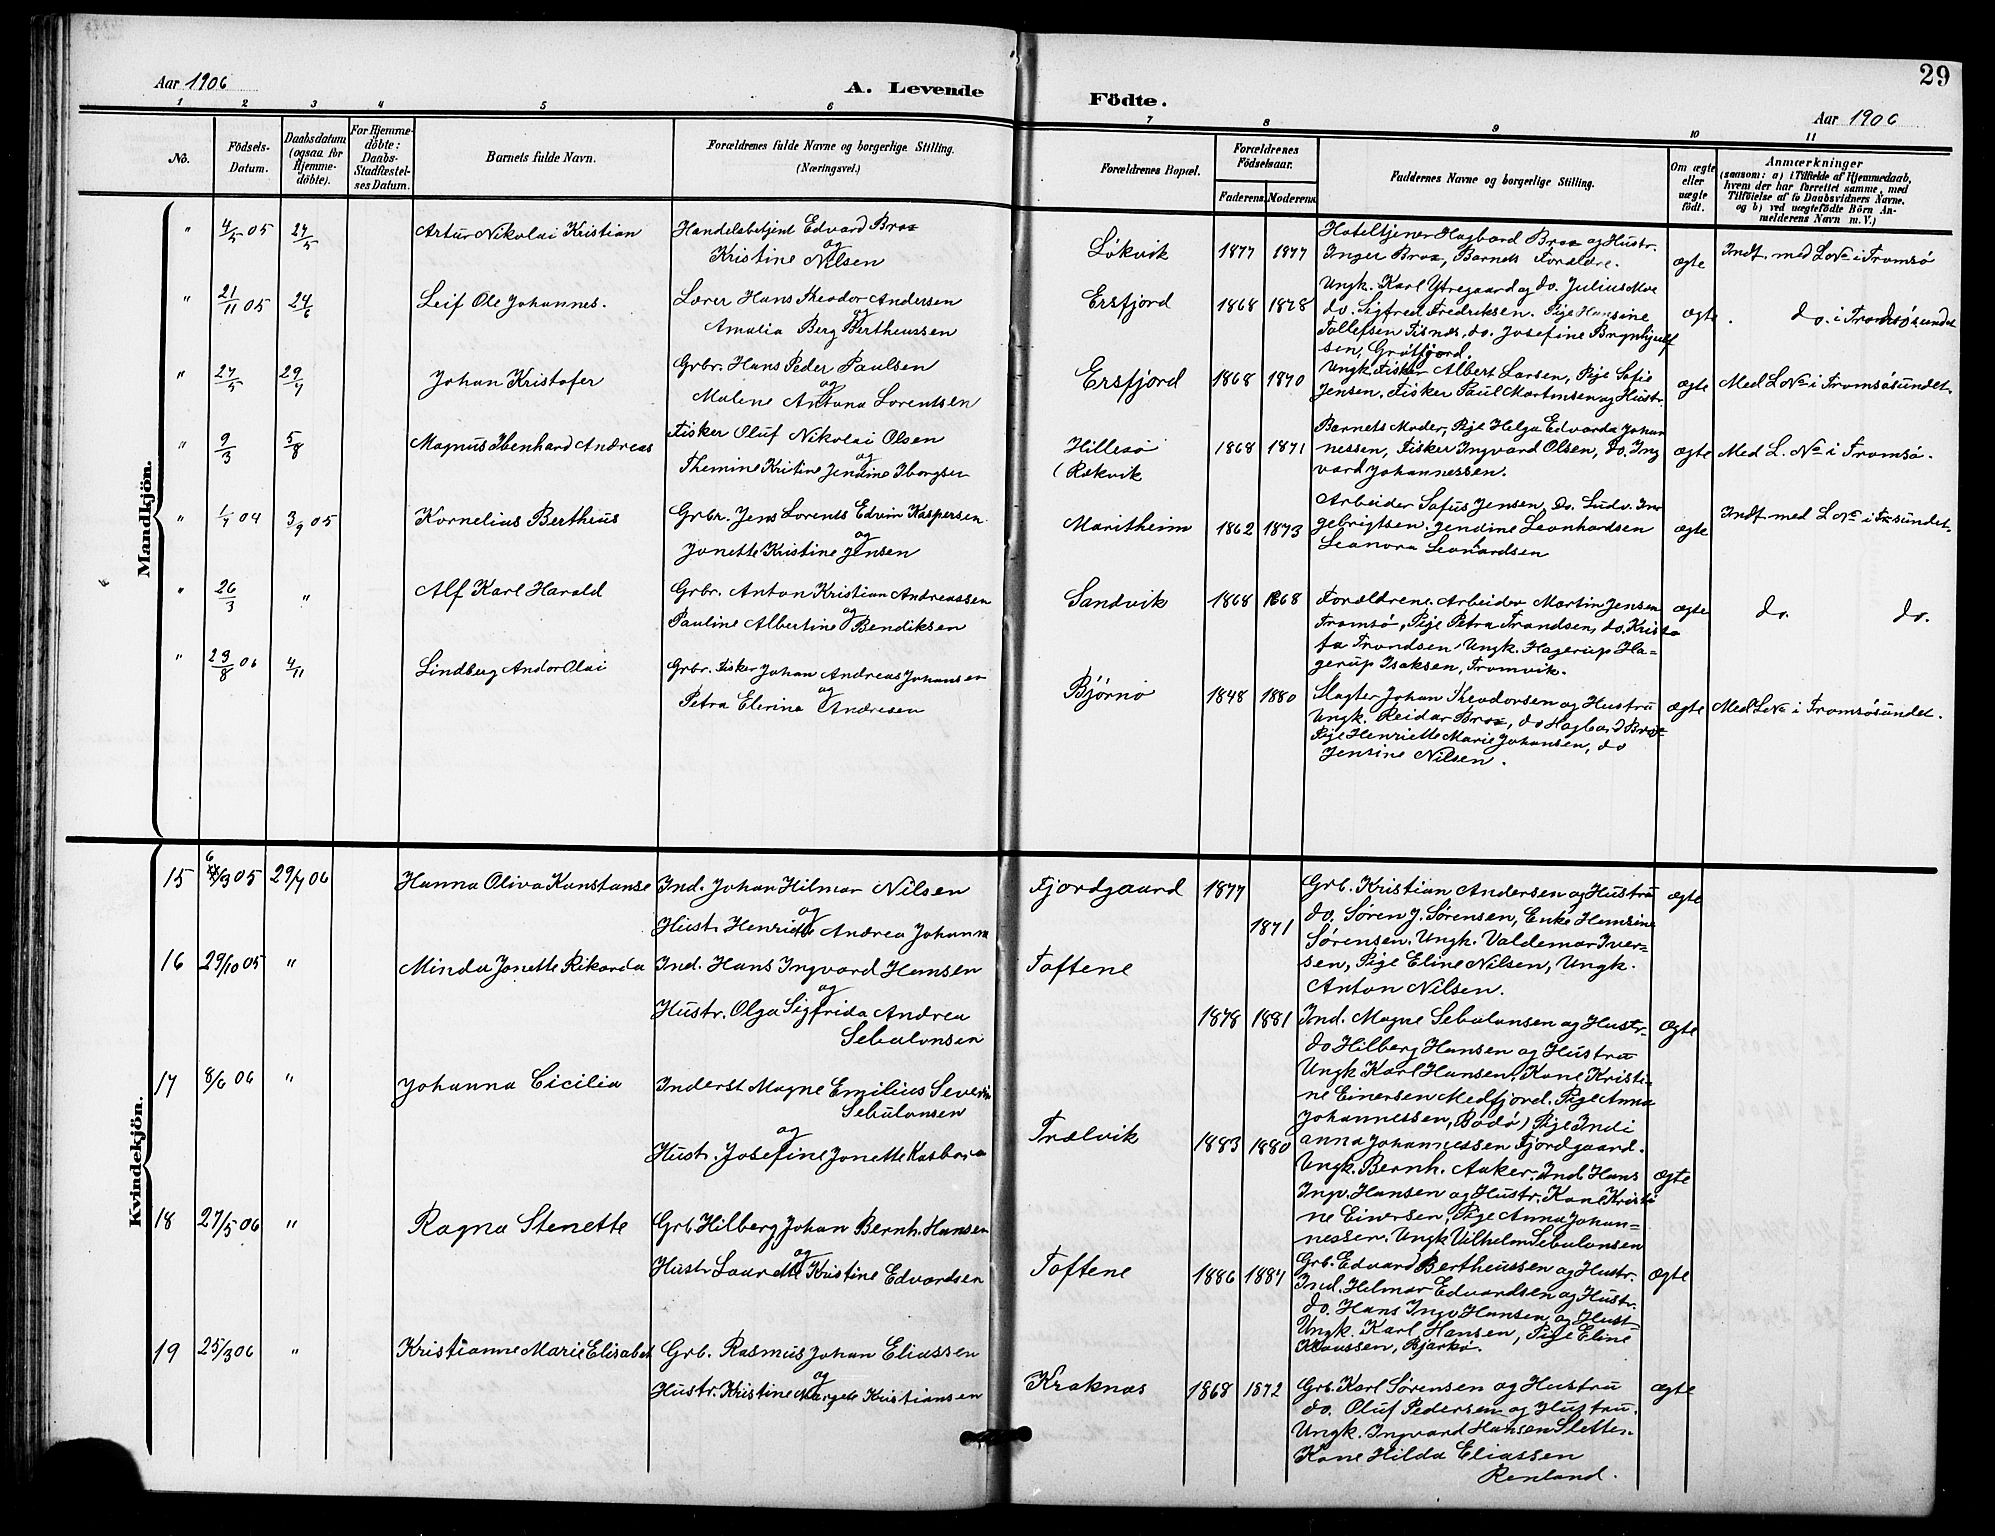 29
Aar 1906
A. Levende
Födte.
Aar 1906
1 2 3 4 5 6 7 8 9 10 11
No.
Födsels-
Datum.
Daabsdatum
(ogsaa for
Hjemme-
döbte).
For Hjemme-
döbte:
Daabs-
Stadfæstel-
ses Datum.
Barnets fulde Navn.
Forældrenes fulde Navne og borgerlige Stilling.
(Næringsvei.)
Forældrenes Bopæl.
Forældrenes
Födselsaar.
Faderens. Moderens.
Faddernes Navne og borgerlige Stilling.
Om ægte
eller
uægte
födt.
Anmærkninger
(saasom: a) i Tilfælde af Hjemmedaab,
hvem der har forrettet samme, med
Tilföielse af to Daabsvidners Navne,
og b) ved uægtefödte Börn An-
melderens Navn m. V.)
Mandkjön.
" 4/5 05 27/5 Artur Nikolai Kristian
Handelsbetjent Edvard Brox
og
Kristine Nilsen
Løkvik 1877 1877
Hoteltjener Hagbard Brox og Hustr.
Inger Brox, Barnets Forældre.
ægte
Indt. med L No i Tromsø
" 21/11 05 24/6 Leif Ole Johannes.
Lærer Hans Theodor Andersen
og
Amalia Berg Bertheussen
Ersfjord 1868 1878
Ungk. Karl Ytregaard og do. Julius Moe
do. Sigfred Fredriksen. Pige Hansine
Tollefsen Tisnes, do. Josefine Brynhjulf
sen, Grøtfjord.
ægte
do. i Tromsøsundet
" 27/5 29/7 Johan Kristofer
Grbr. Hans Peder Paulsen
og
Malene Antona Lorentsen
Ersfjord 1868 1870
Ungk. Fisker Albert Larsen, Pige Sofie
Jensen. Fisker Paul Martinsen og Hustr.
ægte
Med L No i Tromsøsundet.
" 9/3 5/8 Magnus Ibenhard Andreas
Fisker Oluf Nikolai Olsen
og
Themine Kristine Jendine Iborgsen
Hillesø
(Rekvik
1868 1871
Barnets Moder, Pige Helga Edvarda Johan
nessen, Fisker Ingvard Olsen, do. Ing
vard Johannessen.
ægte
Med L. No i Tromsø.
" 1/7 04 3/9 05 Kornelius Bertheus
Grbr. Jens Lorents Edvin Kaspersen
og
Jonette Kristine Jensen
Maritheim 1862 1873
Arbeider Sofus Jensen, do. Ludv. In-
gebrigtsen. Jendine Leonhardsen
Leanora Leonardsen
ægte
Indt. med L No i Tr.sundet.
" 26/3 " Alf Karl Harald
Grbr. Anton Kristian Andreassen
og
Pauline Albertine Bendiksen
Sandvik 1868 1868
Forældrene. Arbeider Martin Jensen
Tromsø, Pige Petra Trondsen, do. Kristo
fa Trondsen, Ungk. Hagerup Ha-
gerup Isaksen, Tromvik.
ægte
do. do.
" 23/8 06 4/11 Lindberg Andor Olai
Grbr. Fisker Johan Andreas Johansen
og
Petra Elerine Andresen
Bjørnø 1848 1880
Slagter Johan Theodorsen og Hustru
Ungk. Reidar Brox, do Hagbard Brox
Pige Henriette Marie Johansen, do
Jensine Nilsen.
ægte
Med L No i Tromsøsundet.
Kvindekjön.
15 6/3 05 29/7 06 Hanna Oliva Konstanse
Ind. Johan Hilmar Nilsen
og
Hustr. Henriette Andrea Johanna
Fjordgaard 1877 1871
Grb. Kristian Andersen og Hustru
do. Søren J. Sørensen, Enke Hemsine
Sørensen. Ungk. Valdemar Iver-
sen, Pige Eline Nilsen, Ungk.
Anton Nilsen.
ægte
16 29/10 05 " Minda Jonette Rikarda
Ind. Hans Ingvard Hansen
og
Hustr. Olga Sigfrida Andrea
Sebulonsen
Toftene 1878 1881
Ind. Magne Sebulonsen og Hustr-
do Hilberg Hansen og Hustru
Ungk Karl Hansen, Kone Kristi-
ne Einersen Medfjord. Pige Anna
Johannessen, Bodø, Pige Indi
anna Johannessen Fjordgaard.
ægte
17 8/6 06 " Johanna Cicilia
Inderst Magne Emilius Severin
Sebulonsen
og
Hustr. Josefine Jonette Kasbara
Trælvik 1883 1880
Ungk. Bernh. Aaker. Ind. Hans
Ingv. Hansen og Hustr. Kone Kristi
ne Einersen, Pige Anna Johan-
nessen. Ungk Vilhelm Sebulonsen
ægte
18 27/5 06 " Ragna Stenette
Grb Hilberg Johan Bernh. Hansen
og
Hustr Laurette Kristine Edvardsen
Toftene 1886 1887
Grb. Edvard Bertheussen og Hustr.
Ind. Hilmar Edvardsen og Hustr.
do. Hans Ingv Hansen og Hust-
Ungk. Karl Hansen, Pige Eline
Klaussen, Bjarkø.
ægte
19 25/3 06 " Kristianne Marie Elisabet
Grb. Rasmus Johan Eliassen
og
Hustr. Kristine Margete Kristiansen
Kraknæs 1868 1872
Grb. Karl Sørensen og Hustru
do. Oluf Pedersen og Hustru.
Ungk. Ingvard Hansen Sletten.
Kone Hilda Eliassen
Renland.
ægte